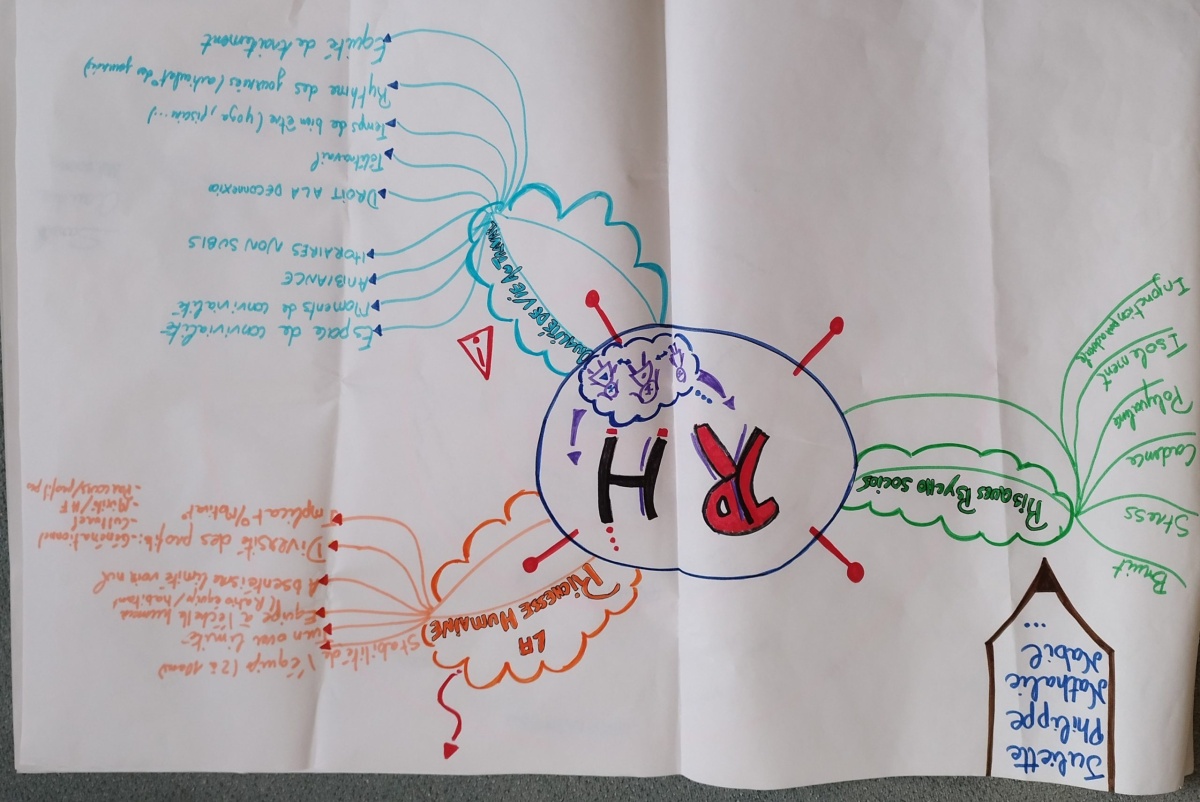 Juliette
Philippe
Nathalie
Nabil
...
Bruit
Stress
Cadence
Polyvalence
Isolement
Injonction paradoxale
RISQUES PSYCHO SOCIOS
RH
LA
RICHESSE HUMAINE
Stabilité de l'équipe (2 à 10ans)
Turn over limité
Equipe à l'échelle humaine
(Ratio équip/habitant)
Absentéisme limité voire nul
Diversité des profils: -Générationnel
-Culturel
-Mixité H/F
-Parcours/profil pro
Implicat°/Motivat°
QUALITÉ DE VIE AU TRAVAIL
Espace de convivialité
Moments de convivialité
AMBIANCE
HORAIRES NON SUBIS
DROIT A LA DECONNEXION
Télétravail
Temps de bien être (yoga, piscine...)
Rythme des journées (articulat° des journées)
Equité de traitement